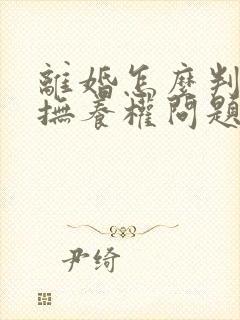 離婚怎麼判
撫養權問題
尹绮